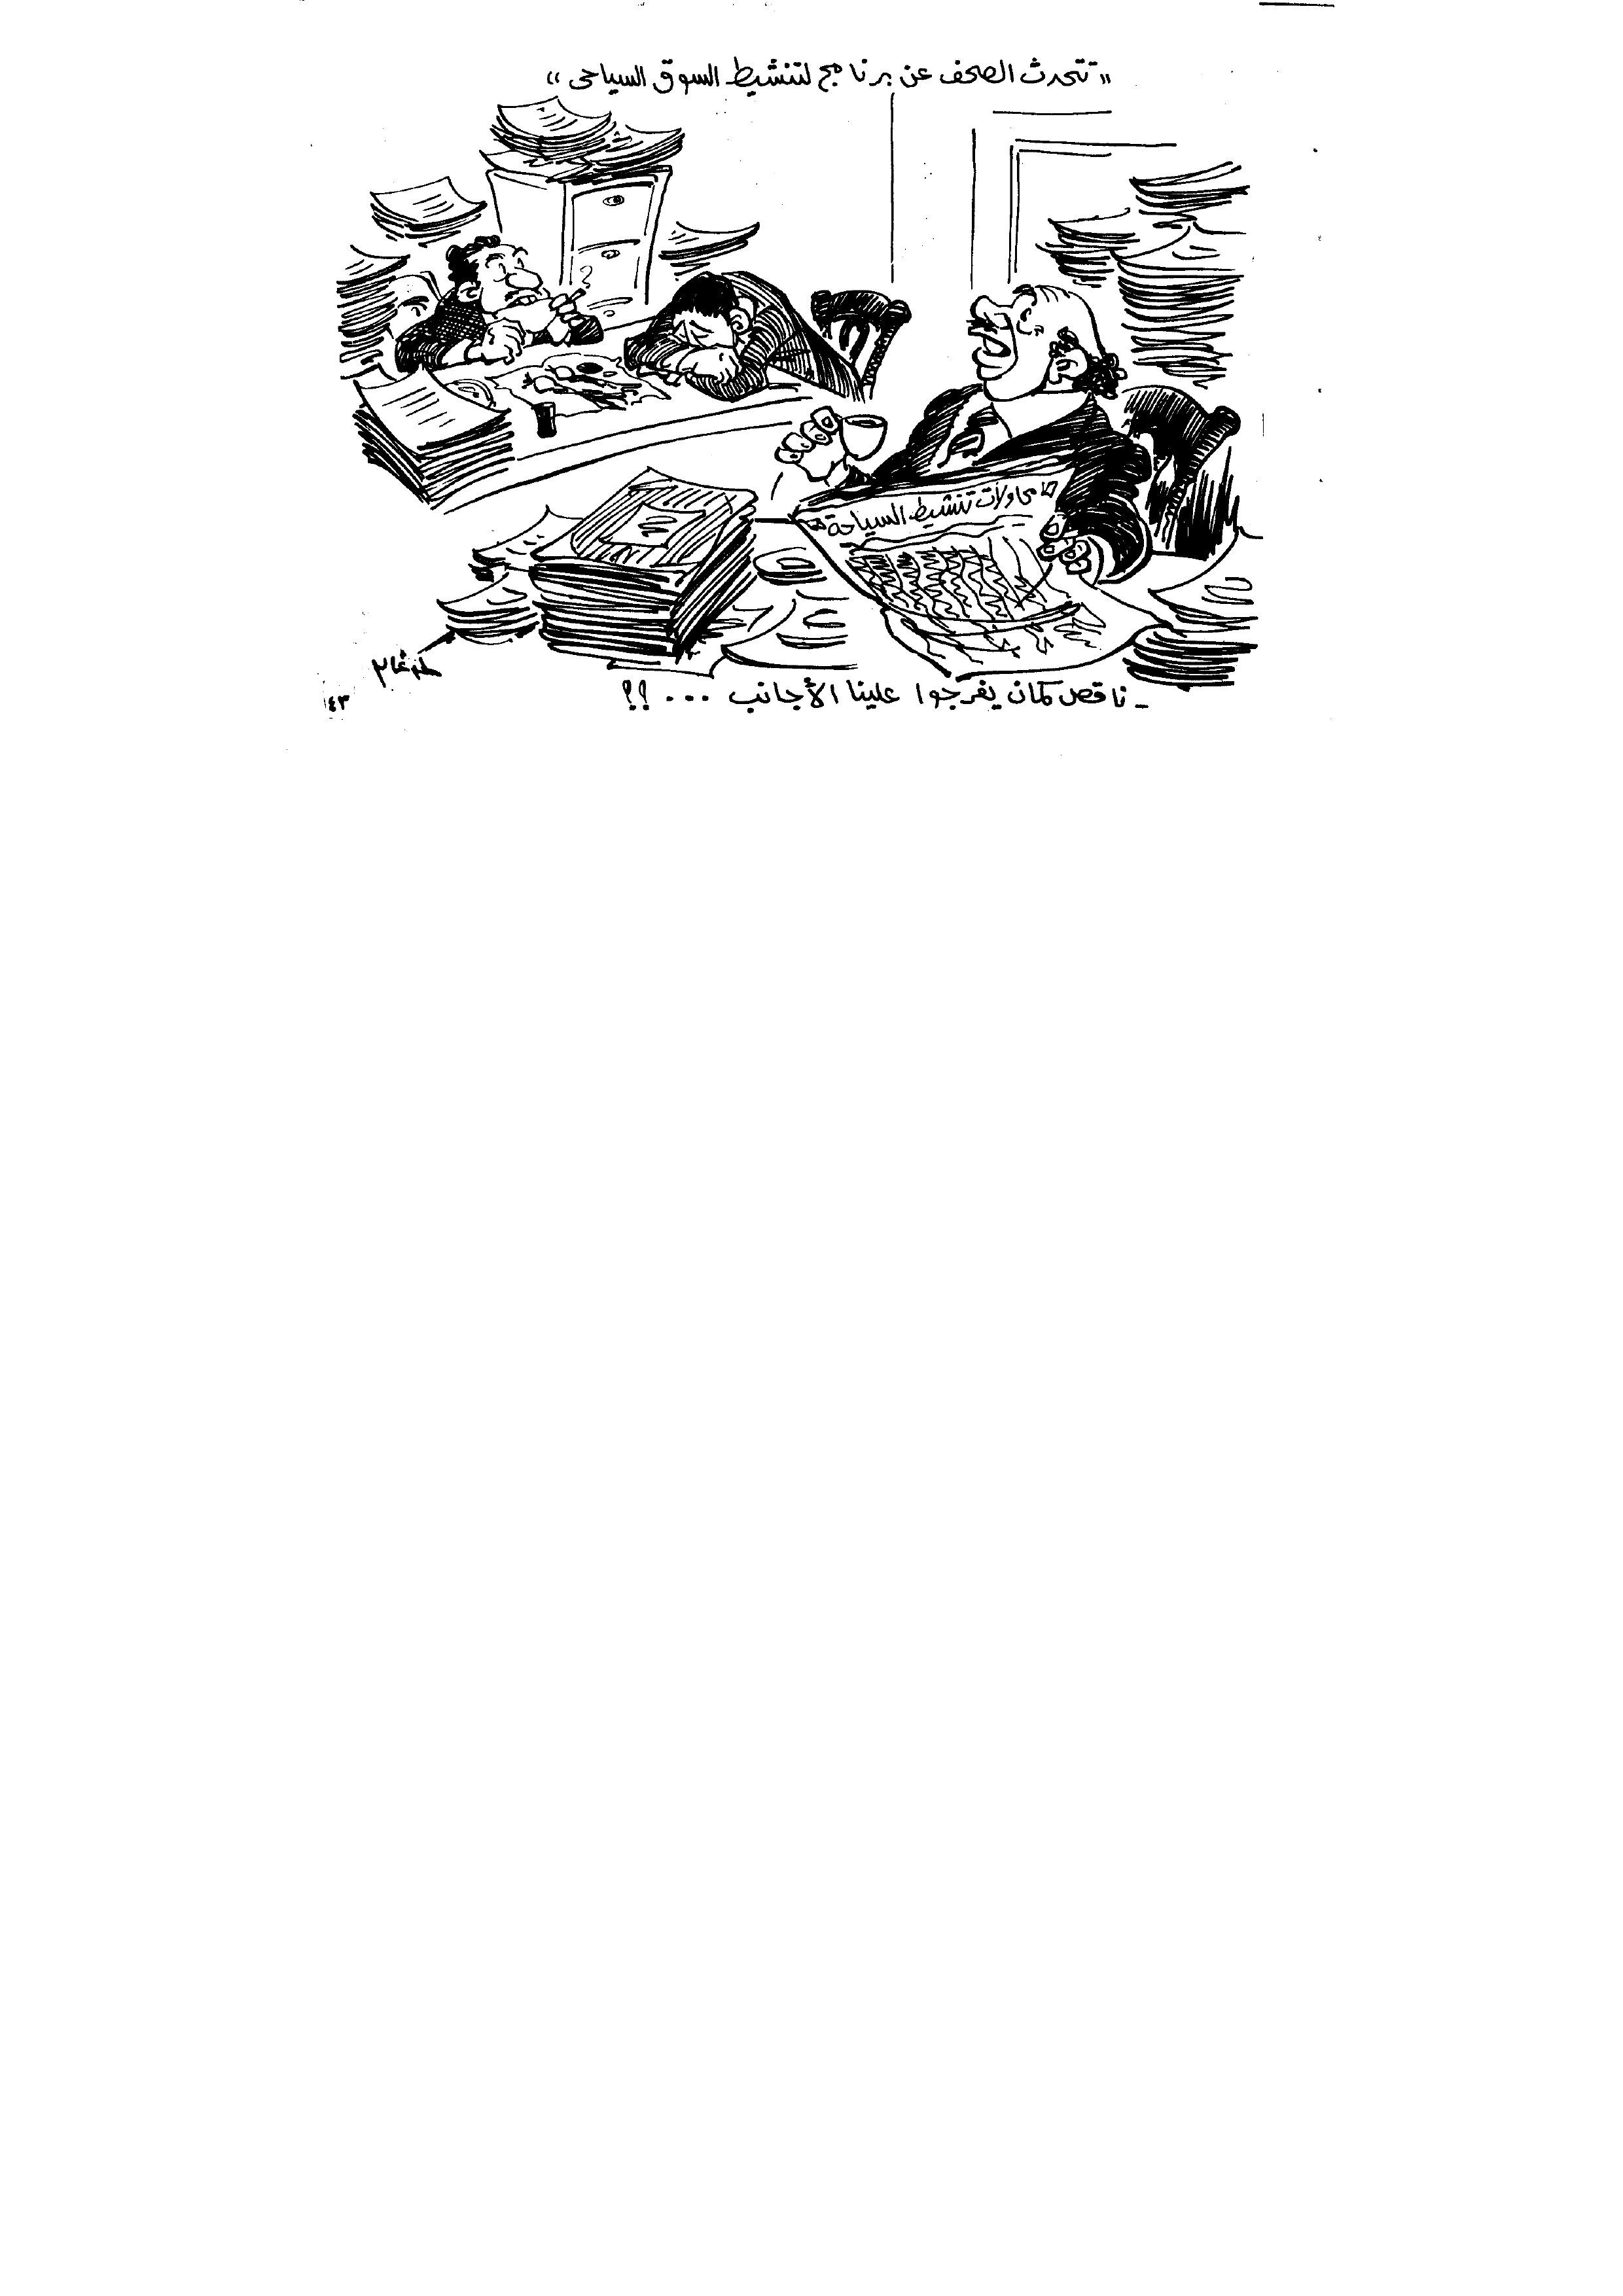 "تتحدث الصحف عن برنامج لتنشيط السوق السياحى"
محاولات تنشيط السياحة
- ناقص كمان يفرجوا علينا الأجانب ...؟؟
١٤٣